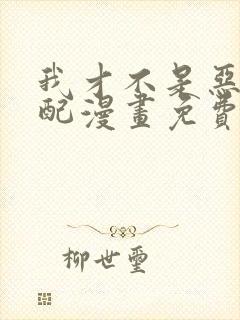 我才不是惡
配漫畫免費
柳世璽